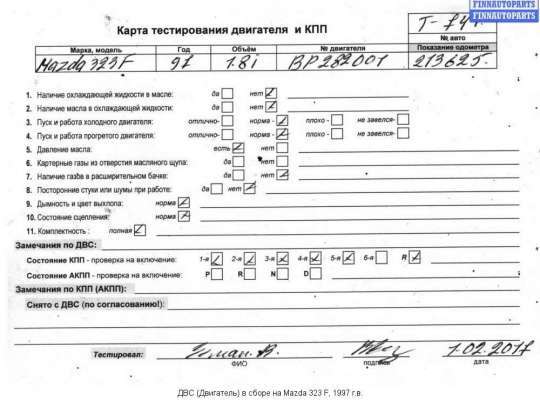 FINNAUTOPARTS
FINNAUTOPARTS
Карта тестирования двигателя и КПП
№ авто
Марка, модель Год Объём № двигателя Показание одометра
Mazda 323F 97 1.8i BP282001 213625
1. Наличие охлаждающей жидкости в масле: да нет
2. Наличие масла в охлаждающей жидкости: да нет
3. Пуск и работа холодного двигателя: отлично- норма - плохо - не завелся-
4. Пуск и работа прогретого двигателя: отлично- норма - плохо - не завелся-
5. Давление масла: есть нет
6. Картерные газы из отверстия масляного щупа: да нет
7. Наличие газа в расширительном бачке: да нет
8. Посторонние стуки или шумы при работе: да нет
9. Дымность и цвет выхлопа: норма
10. Состояние сцепления: норма
11. Комплектность : полная
Замечания по ДВС:
Состояние КПП - проверка на включение: 1-я 2-я 3-я 4-я 5-я 6-я R
Состояние АКПП - проверка на включение: P R N D
Замечания по КПП (АКПП):
Снято с ДВС (по согласованию!):
Тестировал: 1.02.2017
ФИО подпись дата
ДВС (Двигатель) в сборе на Mazda 323 F, 1997 г.в.